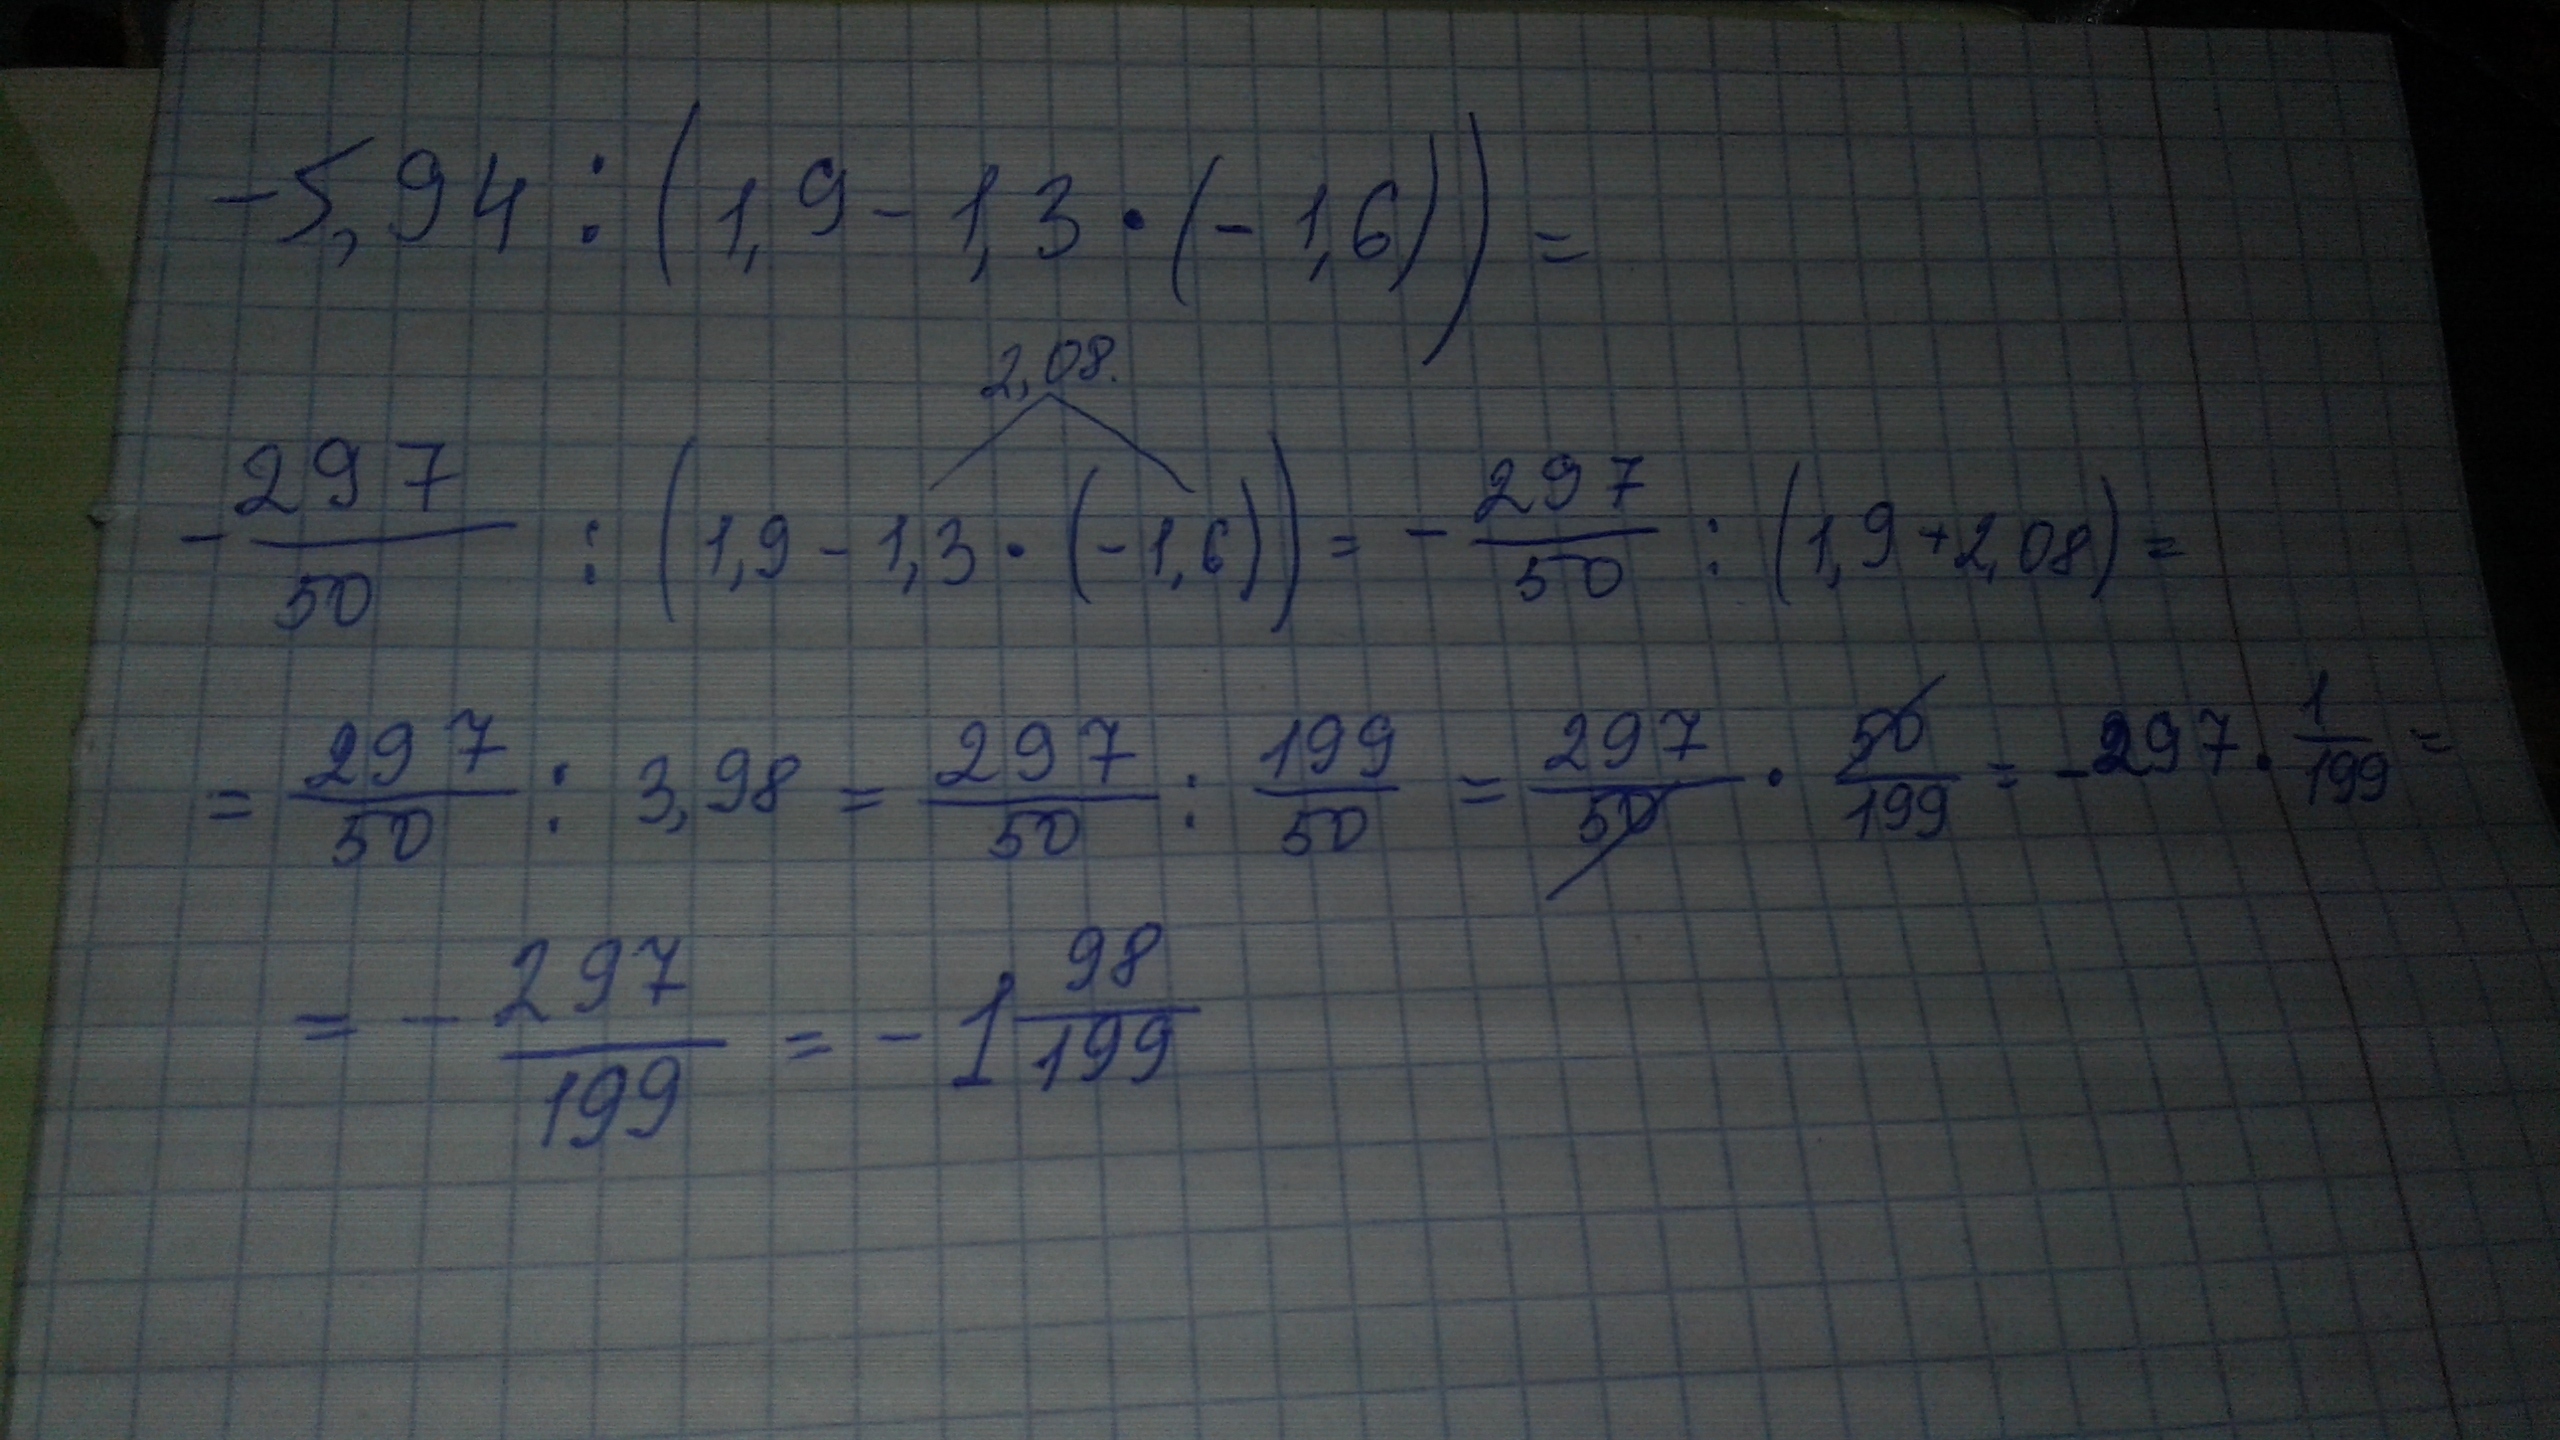 -5,94 : (1,9 - 1,3 · (-1,6)) =
2,08.
-297/50 : (1,9 - 1,3 · (-1,6)) = -297/50 : (1,9 + 2,08) =
= 297/50 : 3,98 = 297/50 : 199/50 = 297/50 · 50/199 = -297 · 1/199 =
= -297/199 = -1 98/199